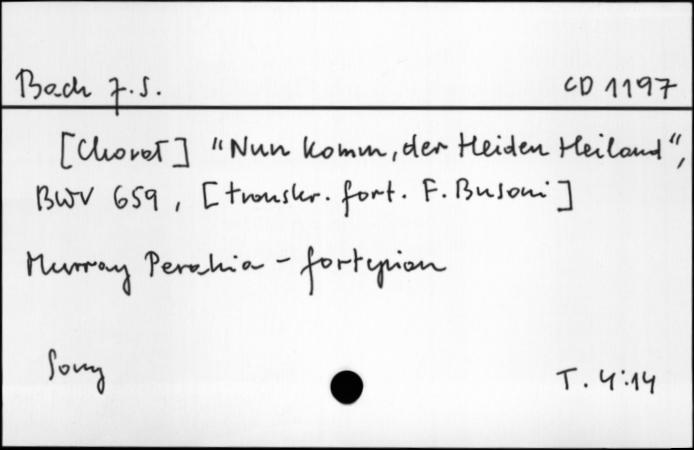 Bach J.S. CD 1197
[Chorał] "Nun komm, der Heiden Heiland",
BWV 659, [transkr. fort. F. Busoni]
Murray Perahia - fortepian
Sony T. 4:14